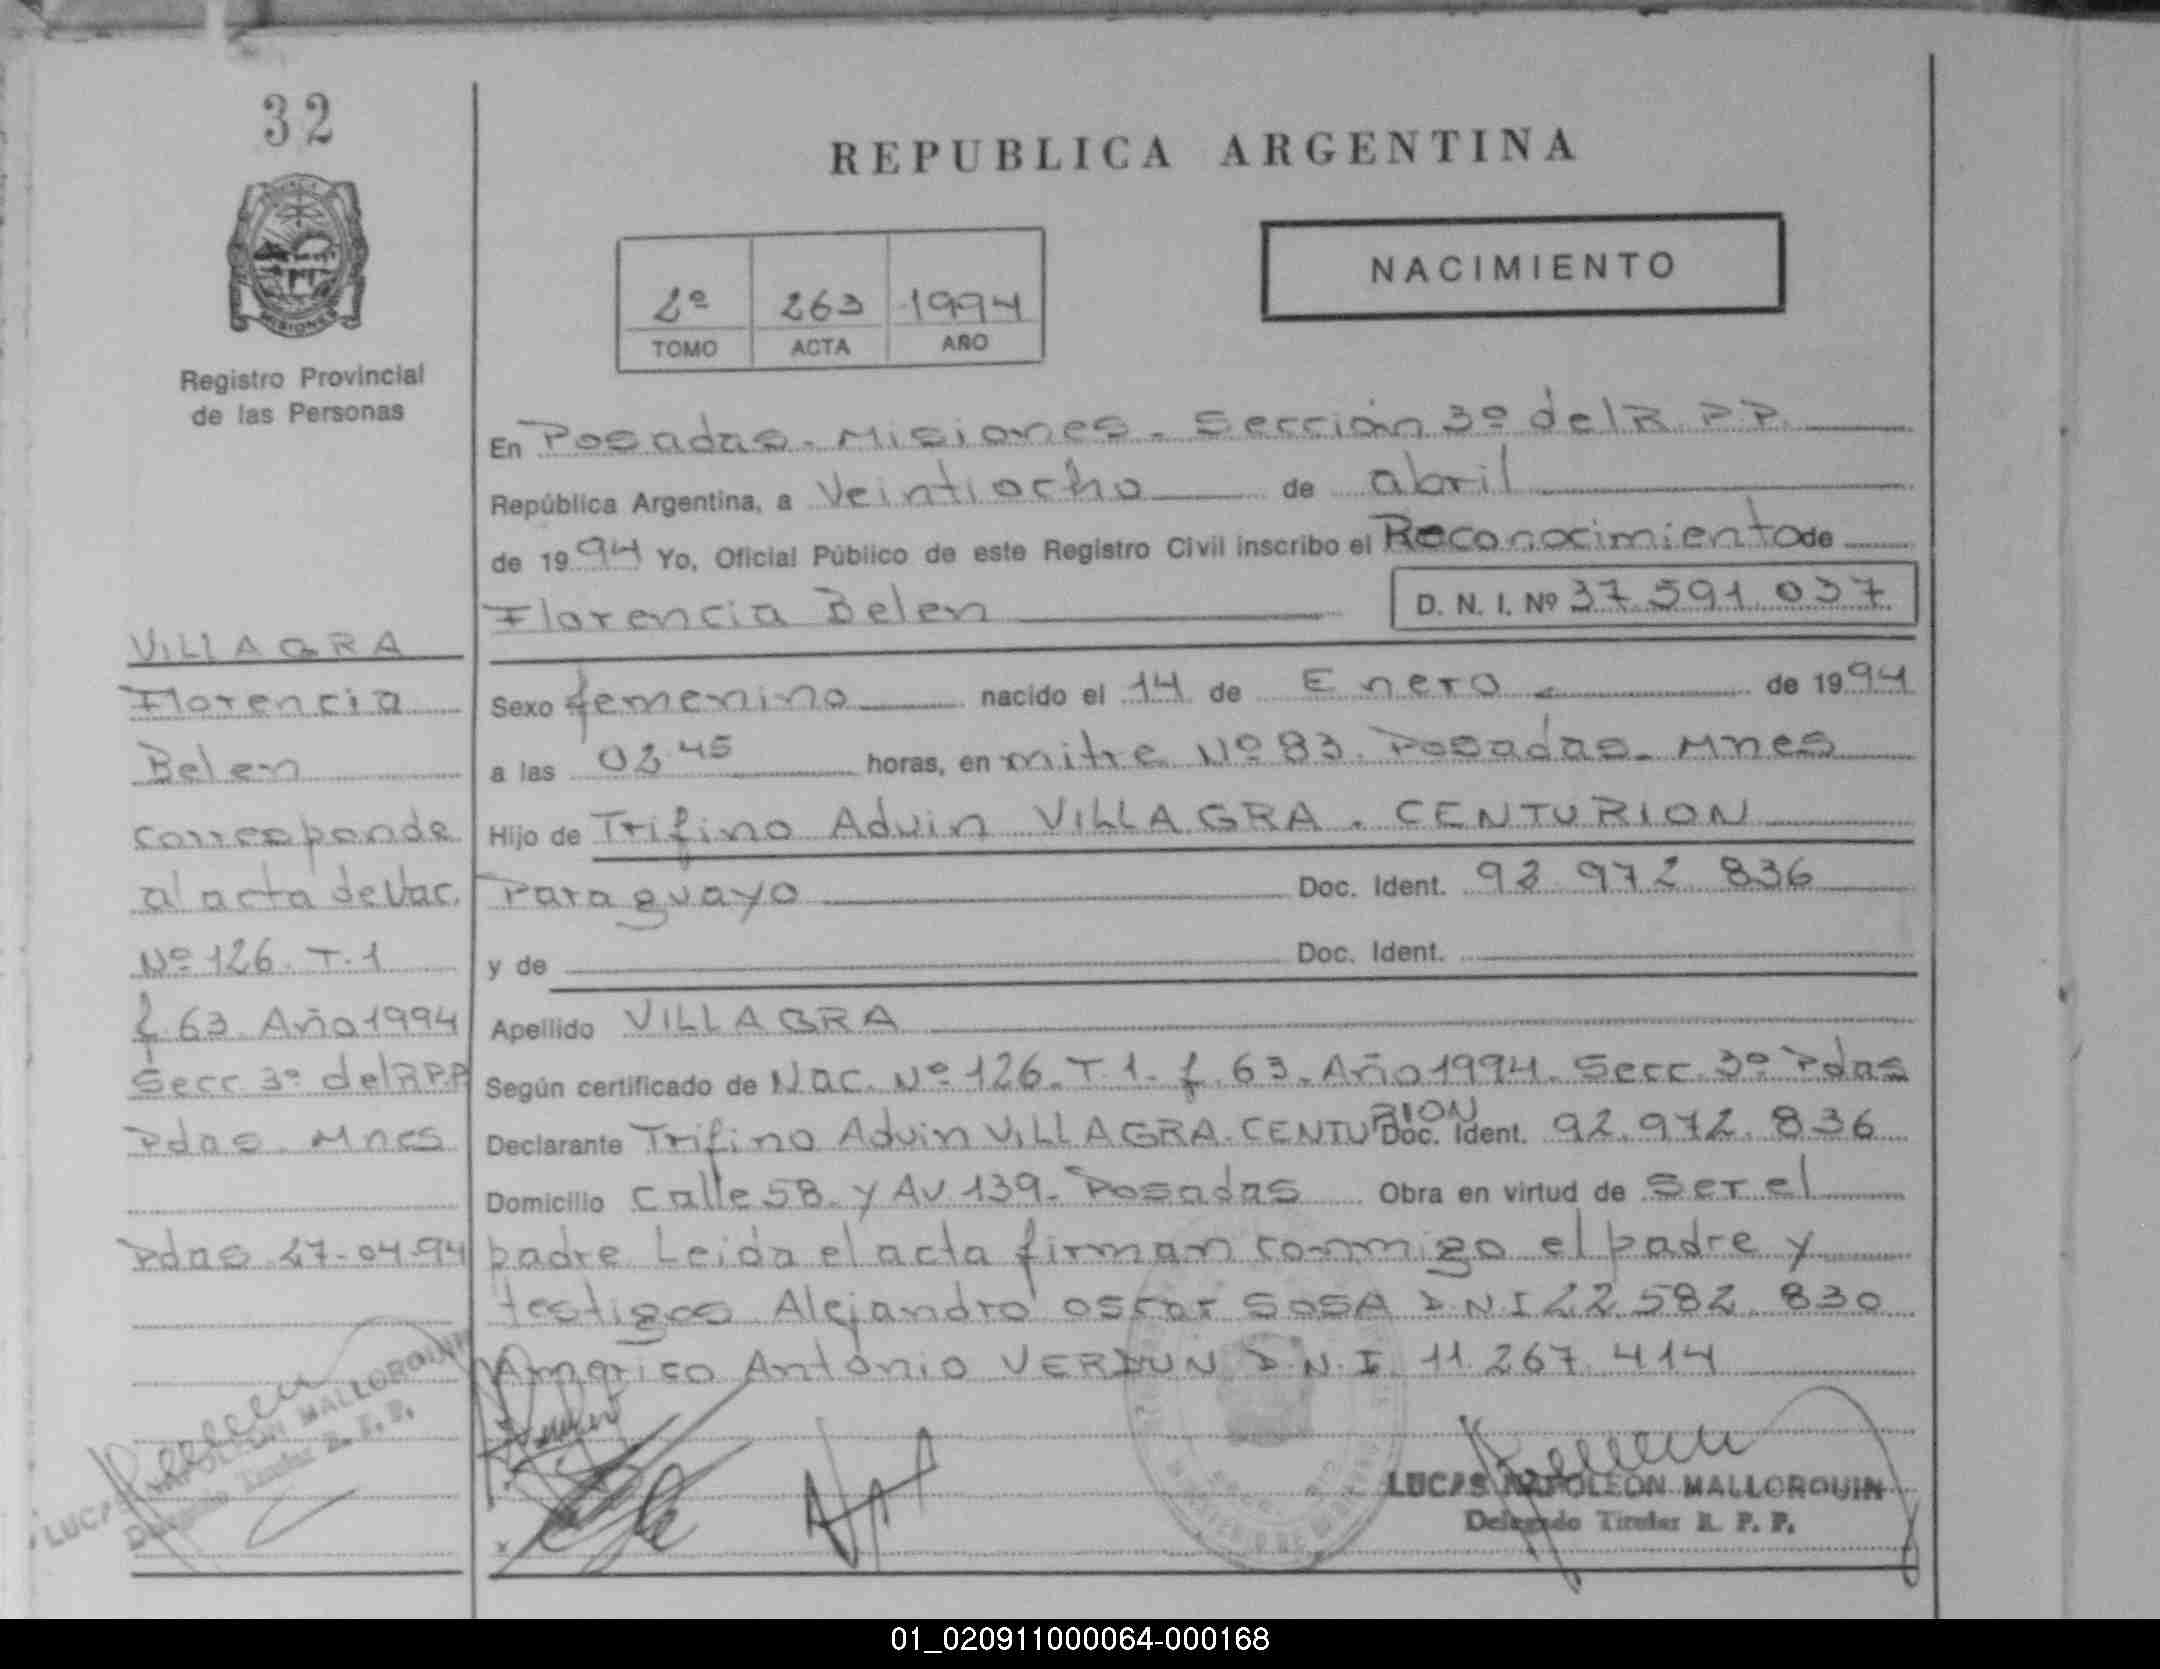 32
MISIONES
Registro Provincial
de las Personas
REPUBLICA ARGENTINA
NACIMIENTO
2º 263 1994
TOMO ACTA AÑO
En Posadas - Misiones - Sección 3º del R.P.P.
República Argentina, a Veintiocho de abril
de 1994 Yo, Oficial Público de este Registro Civil inscribo el Reconocimiento de
Florencia Belen D. N. I. Nº 37.591.037
Sexo femenino nacido el 14 de Enero de 1994
a las 02 45 horas, en mitre Nº 83. Posadas - Mnes
Hijo de Trifino Aduin VILLAGRA . CENTURION
Paraguayo Doc. Ident. 92 972 836
y de Doc. Ident.
Apellido VILLAGRA
Según certificado de Nac. Nº 126. T.1. f 63. Año 1994. Secc. 3º Pdas
Declarante Trifino Aduin VILLAGRA. CENTURION Doc. Ident. 92.972.836
Domicilio Calle 58 y AV 139. Posadas Obra en virtud de Ser el
padre Leida el acta firman conmigo el padre y
testigos Alejandro Oscar SOSA D.N.I 22 582 830
Americo Antonio VERDUN D.N.I. 11.267.414
LUCAS NAPOLEON MALLORQUIN
Delegado Titular R. P. P.
VILLAGRA
Florencia
Belen
corresponde
al acta de Nac.
Nº 126. T.1
f. 63 Año 1994
Secc 3º del R.P.P
Pdas. Mnes
Pdas 27-04-94
LUCAS NAPOLEON MALLORQUIN
Delegado Titular R. P. P.
01_020911000064-000168